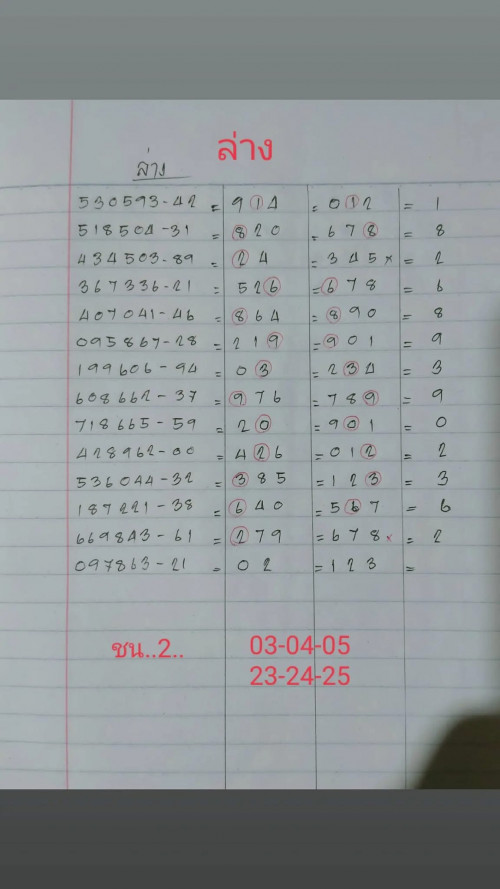 ล่าง
ล่าง
530593-42 = 914 = 012 = 1
518504-31 = 820 = 678 = 8
434503-89 = 24 = 345 × = 2
367336-21 = 526 = 678 = 6
407041-46 = 864 = 890 = 8
095867-28 = 219 = 901 = 9
199606-94 = 03 = 234 = 3
608662-37 = 976 = 789 = 9
718665-59 = 20 = 901 = 0
428962-00 = 426 = 012 = 2
536044-32 = 385 = 123 = 3
187221-38 = 640 = 567 = 6
669843-61 = 279 = 678 × = 2
097863-21 = 02 = 123 =
ชน..2.. 03-04-05
23-24-25